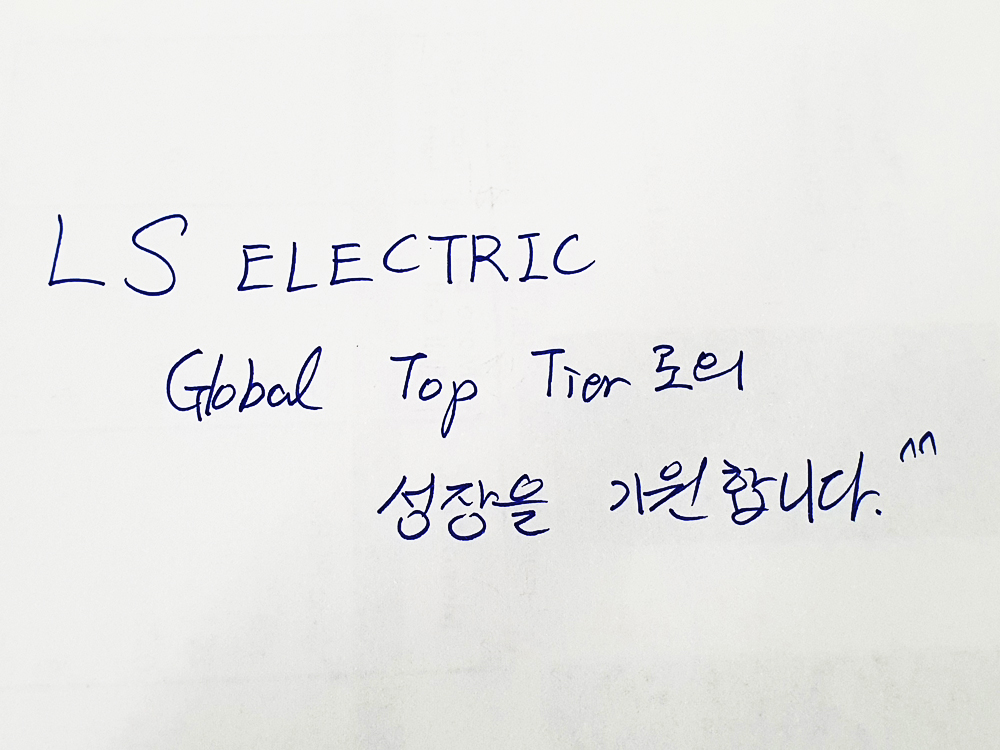 LS ELECTRIC
Global Top Tier로의
성장을 기원합니다.^^